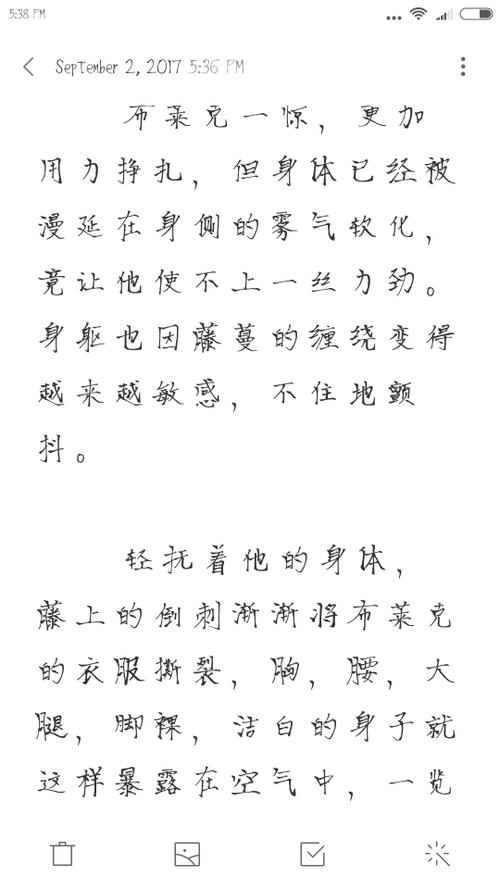 5:38 PM
September 2, 2017 5:36 PM
布莱克一惊，更加
用力挣扎，但身体已经被
漫延在身侧的雾气软化，
竟让他使不上一丝力劲。
身躯也因藤蔓的缠绕变得
越来越敏感，不住地颤
抖。
轻抚着他的身体，
藤上的倒刺渐渐将布莱克
的衣服撕裂，胸，腰，大
腿，脚裸，洁白的身子就
这样暴露在空气中，一览